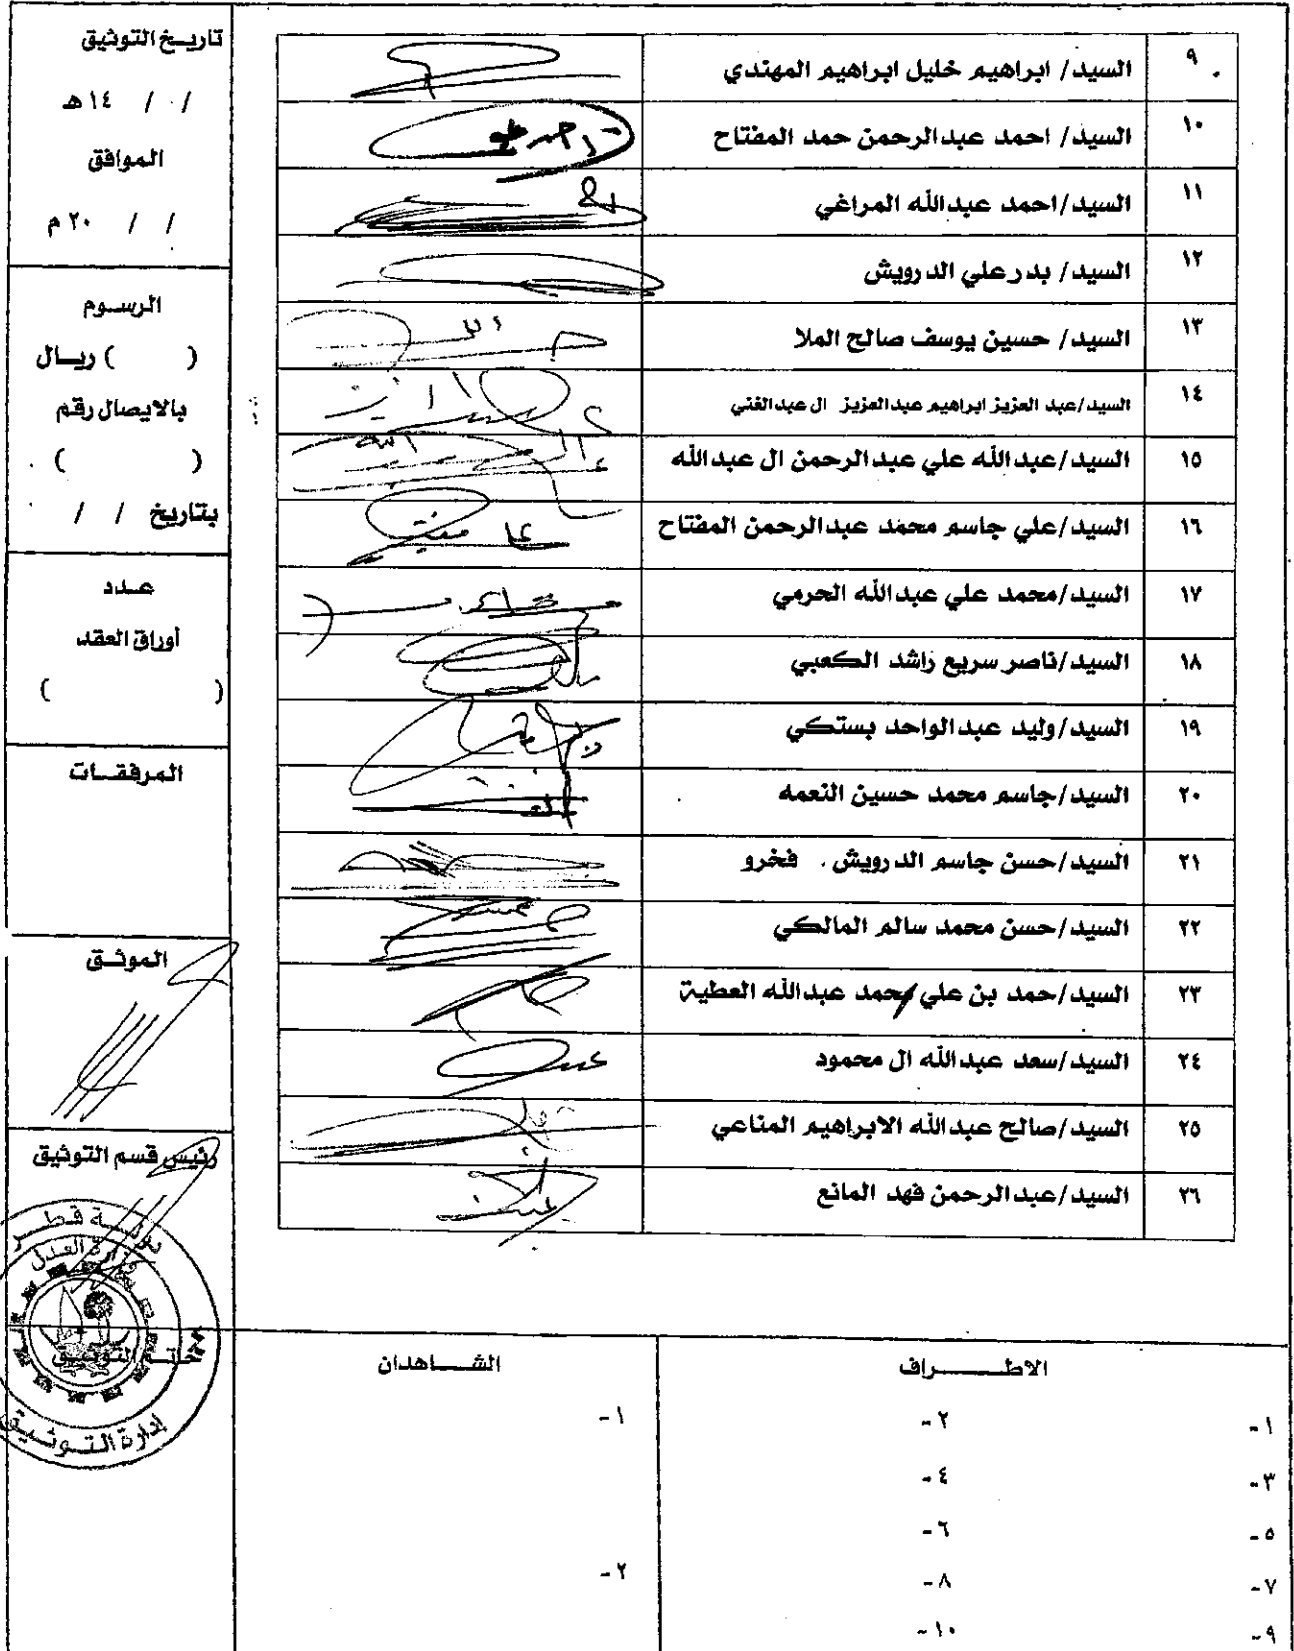 ٩ السيد/ ابراهيم خليل ابراهيم المهندي
١٠ السيد/ احمد عبدالرحمن حمد المفتاح
١١ السيد/احمد عبدالله المراغي
١٢ السيد/ بدر علي الدرويش
١٣ السيد/ حسين يوسف صالح الملا
١٤ السيد/عبد العزيز ابراهيم عبدالعزيز ال عبدالغني
١٥ السيد/عبدالله علي عبدالرحمن ال عبدالله
١٦ السيد/علي جاسم محمد عبدالرحمن المفتاح
١٧ السيد/محمد علي عبدالله الحرمي
١٨ السيد/ناصر سريع راشد الكعبي
١٩ السيد/وليد عبدالواحد بستكي
٢٠ السيد/جاسم محمد حسين النعمه
٢١ السيد/حسن جاسم الدرويش . فخرو
٢٢ السيد/حسن محمد سالم المالكي
٢٣ السيد/حمد بن علي محمد عبدالله العطية
٢٤ السيد/سعد عبدالله ال محمود
٢٥ السيد/صالح عبدالله الابراهيم المناعي
٢٦ السيد/عبدالرحمن فهد المانع
تاريخ التوثيق
/ / ١٤ هـ
الموافق
/ / ٢٠ م
الرسوم
( ) ريال
بالايصال رقم
( )
بتاريخ / /
عدد
أوراق العقد
( )
المرفقات
الموثق
رئيس قسم التوثيق
دولة قطر
وزارة العدل
خاتم التوثيق
إدارة التوثيق
الاطراف
١- ٢-
٣- ٤-
٥- ٦-
٧- ٨-
٩- ١٠-
الشاهدان
١-
٢-